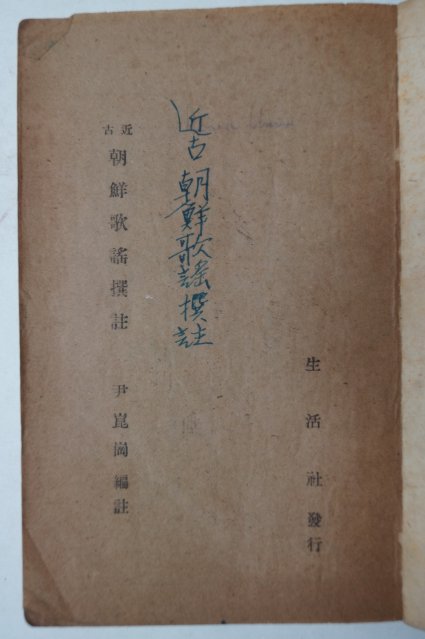 生活社發行
近古朝鮮歌謠撰註
近古 朝鮮歌謠撰註 尹崑崗 編註